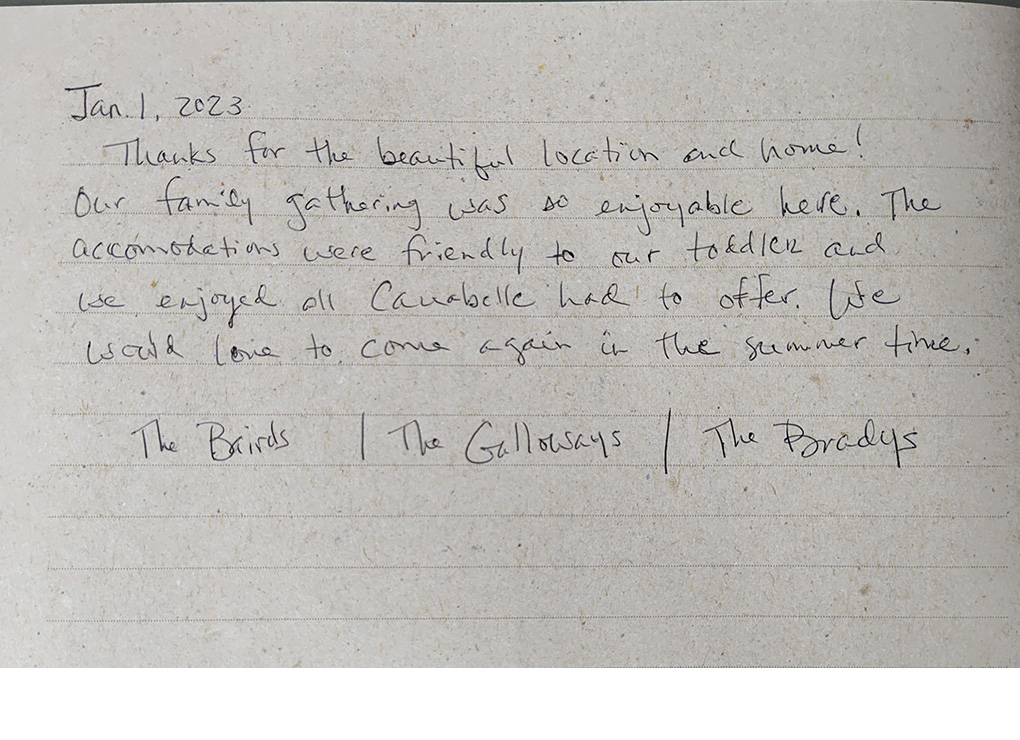 Jan. 1, 2023
Thanks for the beautiful location and home!
Our family gathering was so enjoyable here. The
accomodations were friendly to our toddler and
we enjoyed all Canabelle had to offer. We
would love to come again in the summer time.
The Bairds | The Galloways | The Bradys